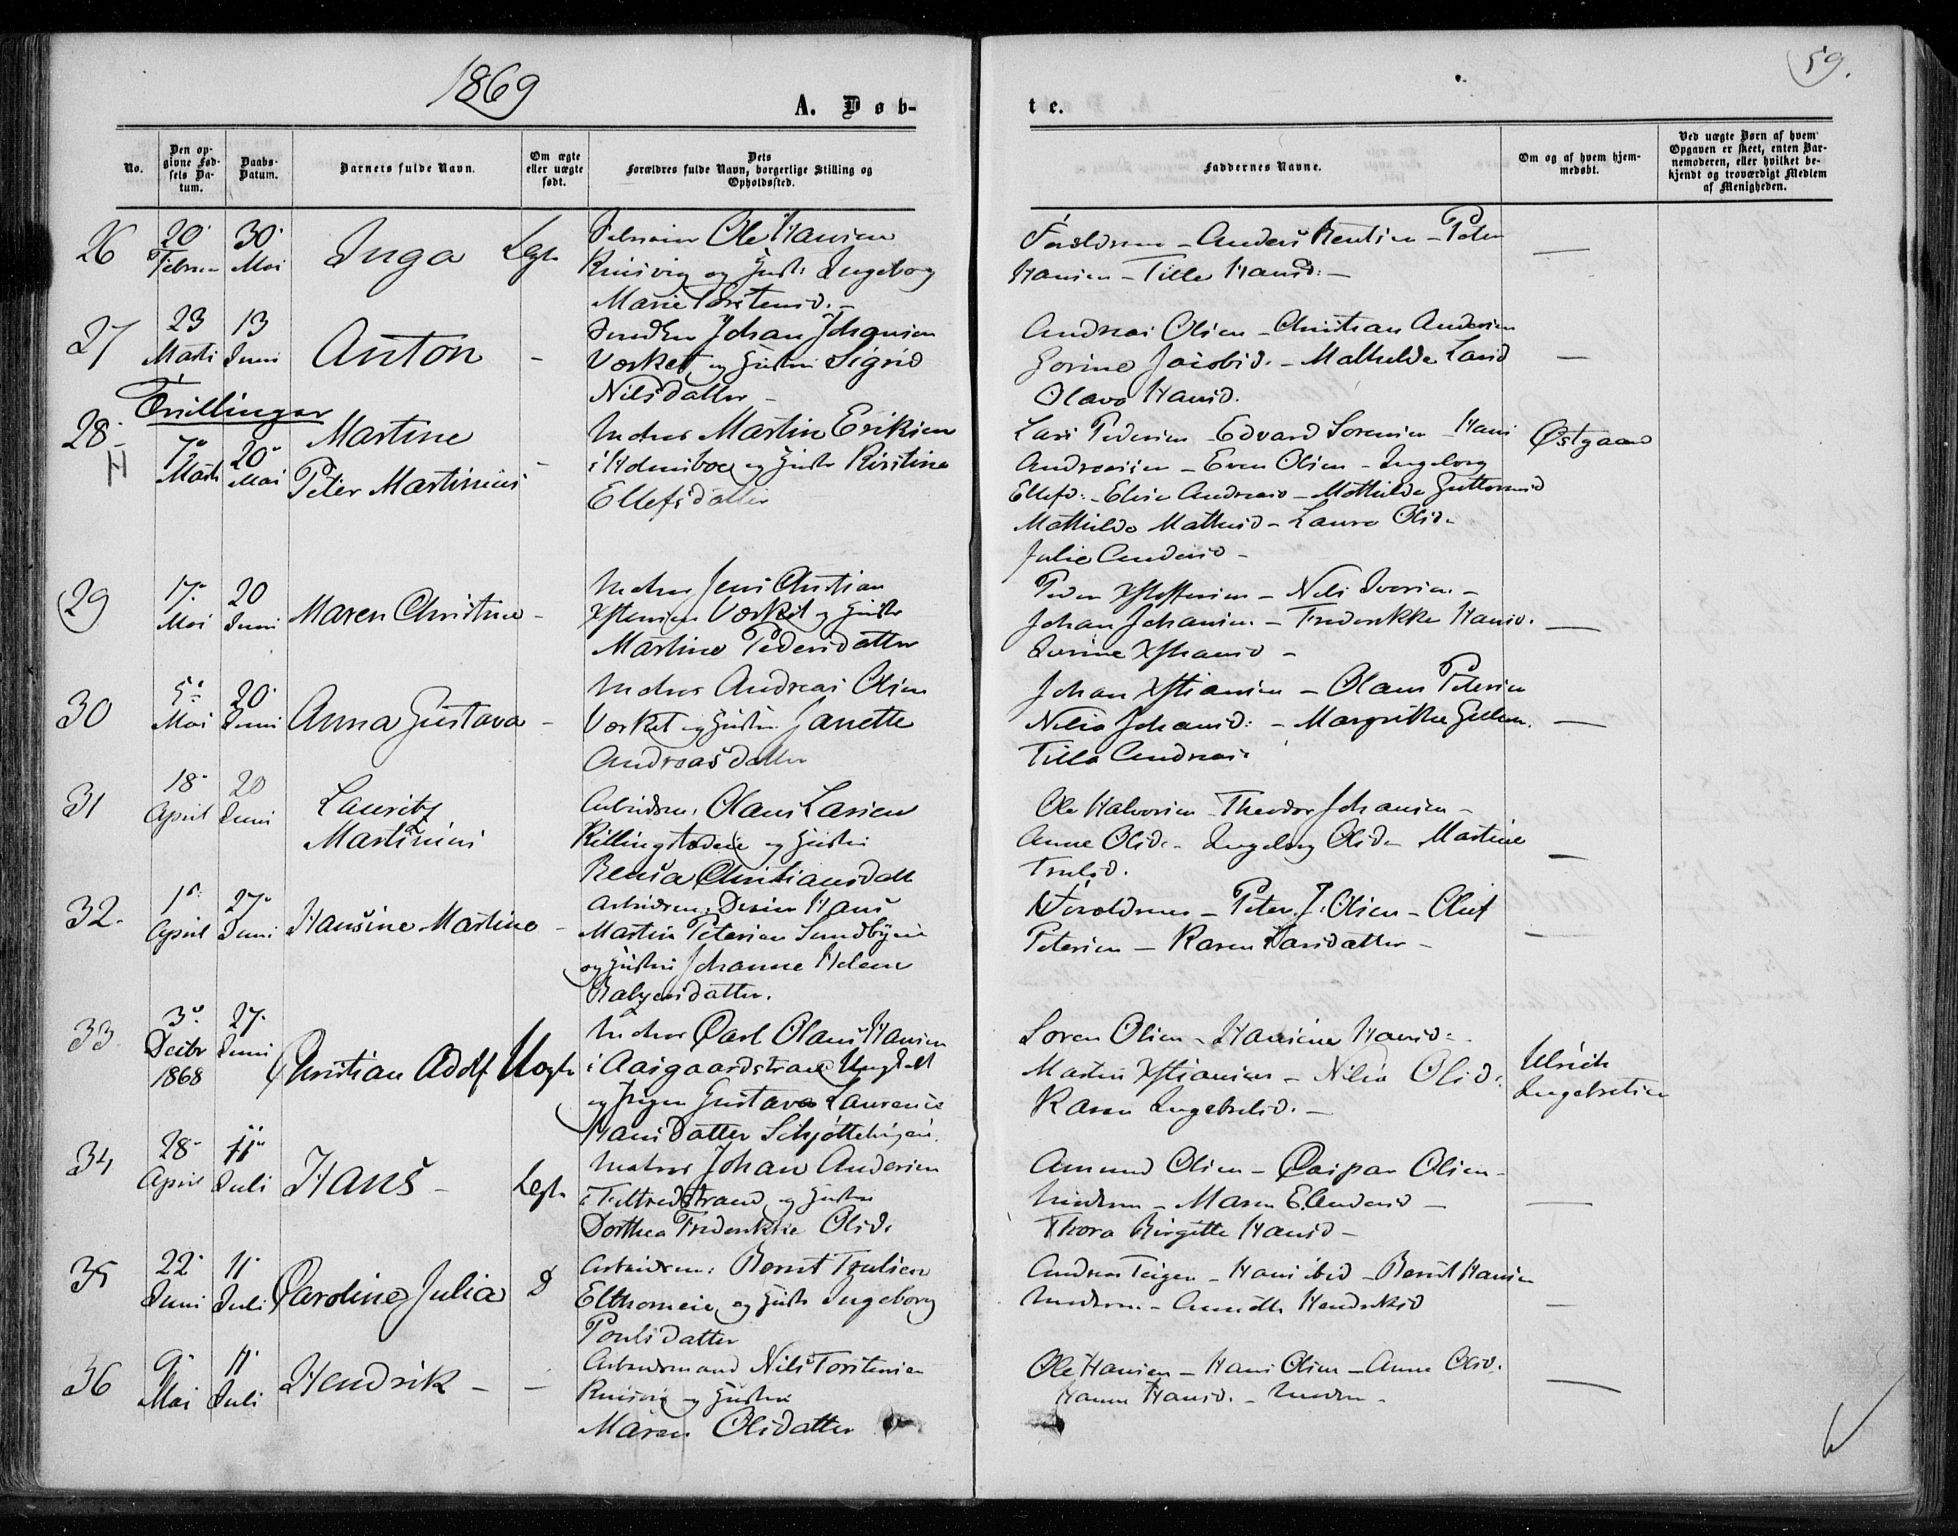 1869
59.
A. Døb-
te.
No.
Den op-
givne Fød-
sels Da-
tum.
Daabs-
Datum.
Barnets fulde Navn.
Om ægte
eller uægte
født.
Dets
Forældres fulde Navn, borgerlige Stilling og
Opholdssted.
Faddernes Navne.
Om og af hvem hjem-
medøbt.
Ved uægte Børn af hvem
Opgaven er skeet, enten Bar-
nemoderen, eller hvilket be-
kjendt og troværdigt Medlem
af Menigheden.
26 20 Februar 30 Mai Inga Legt
Ole Hansen
og Hustr: Ingeborg
Marie Torstensd. -
Forældrene - Anders Bentsen - Peter
Hansen - Tilla Hansd: -
27 23 Marts 13 Juni Anton -
Johan Johansen
Værket og Hustru Sigrid
Nilsdatter -
Andreas Olsen - Christian Andersen
Gorine Jacobsd. - Mathilde Larsd
Olava Hansd.
Tvillinger
28 7 Marts 20 Mai Martine
Peter Martinius
Matros Martin Eriksen
i Holmsboe og Hustr Kirstine
Ellefsdatter
Lars Pedersen - Edvard Sørensen - Hans
Andreassen - Even Olsen - Ingeborg
Ellefsd: - Elise Andreasd - Mathilde Guttormsd
Mathilde Mathisd - Laura Olsd -
Julie Andersd -
Østgaard
29 17 Mai 20 Juni Maren Christine -
Matros Jens Christian
Værket og Hustr
Martine Pedersdatter
Peder - Nils Iversen -
Johan Johansen - Frederikke Hansd.
30 5 Mai 20 Juni Anna Gustava -
Matros Andreas Olsen
Værket og Hustru Janette
Andreasdatter
Johan Xstiansen - Olaus Petersen
Nilia Johansd: - Margrethe
Tilla Andreas:
31 18 April 20 Juni Lauritz
Martinius
Arbeidsm: Olaus Larsen
og Hustru
Christiansdatt
Ole Halvorsen - Theodor Johansen -
Anne Olsd. - Ingeborg Olsd - Martine
Trulsd.
32. 1 April 27 Juni Hansine Martine
Arbeidsm: Hans
Martin Petersen Sundbyeie
og Hustru Johanne Helene
Forældrene - Peter J. Olsen - Oluf
Petersen - Karen Larsdatter -
33 3 Decbr 1868 27 Juni Christian Adolf Uægte
Matros Carl Olaus Hansen
i Aasgaardstrand Ungkarl
og Pigen Gustava Laurense
Hansdatter
Søren Olsen - Hansine Hansd -
Martin Xstiansen - Nilia Olsd.
Karen Ingebretsd. -
Ulrich
Ingebretsen
34 28 April 11 Juli Hans - Legt
Matros Johan Andersen
i Toftestrand og Hustru
Dorthea Frederikke Olsd.
Amund Olsen - Caspar Olsen -
Moderen - Maren E. Andersd -
Thora Birgitte Hansd -
35 22 Juni 11 Juli Caroline Julia D
Arbeidsm: Bernt Trulsen
og Hustr Ingeborg
Poulsdatter
Andreas Teigen - Hans ibid - Bernt Hansen
Moderen - Henriksd
36 9 Mai 11 Juli Hendrik - -
Arbeidsmand Nils Torstensen
og Hustru
Maren Olsdatter
Ole Hansen - Hans Olsen - Anne Olsd.
Hanne Hansd. - Moderen -